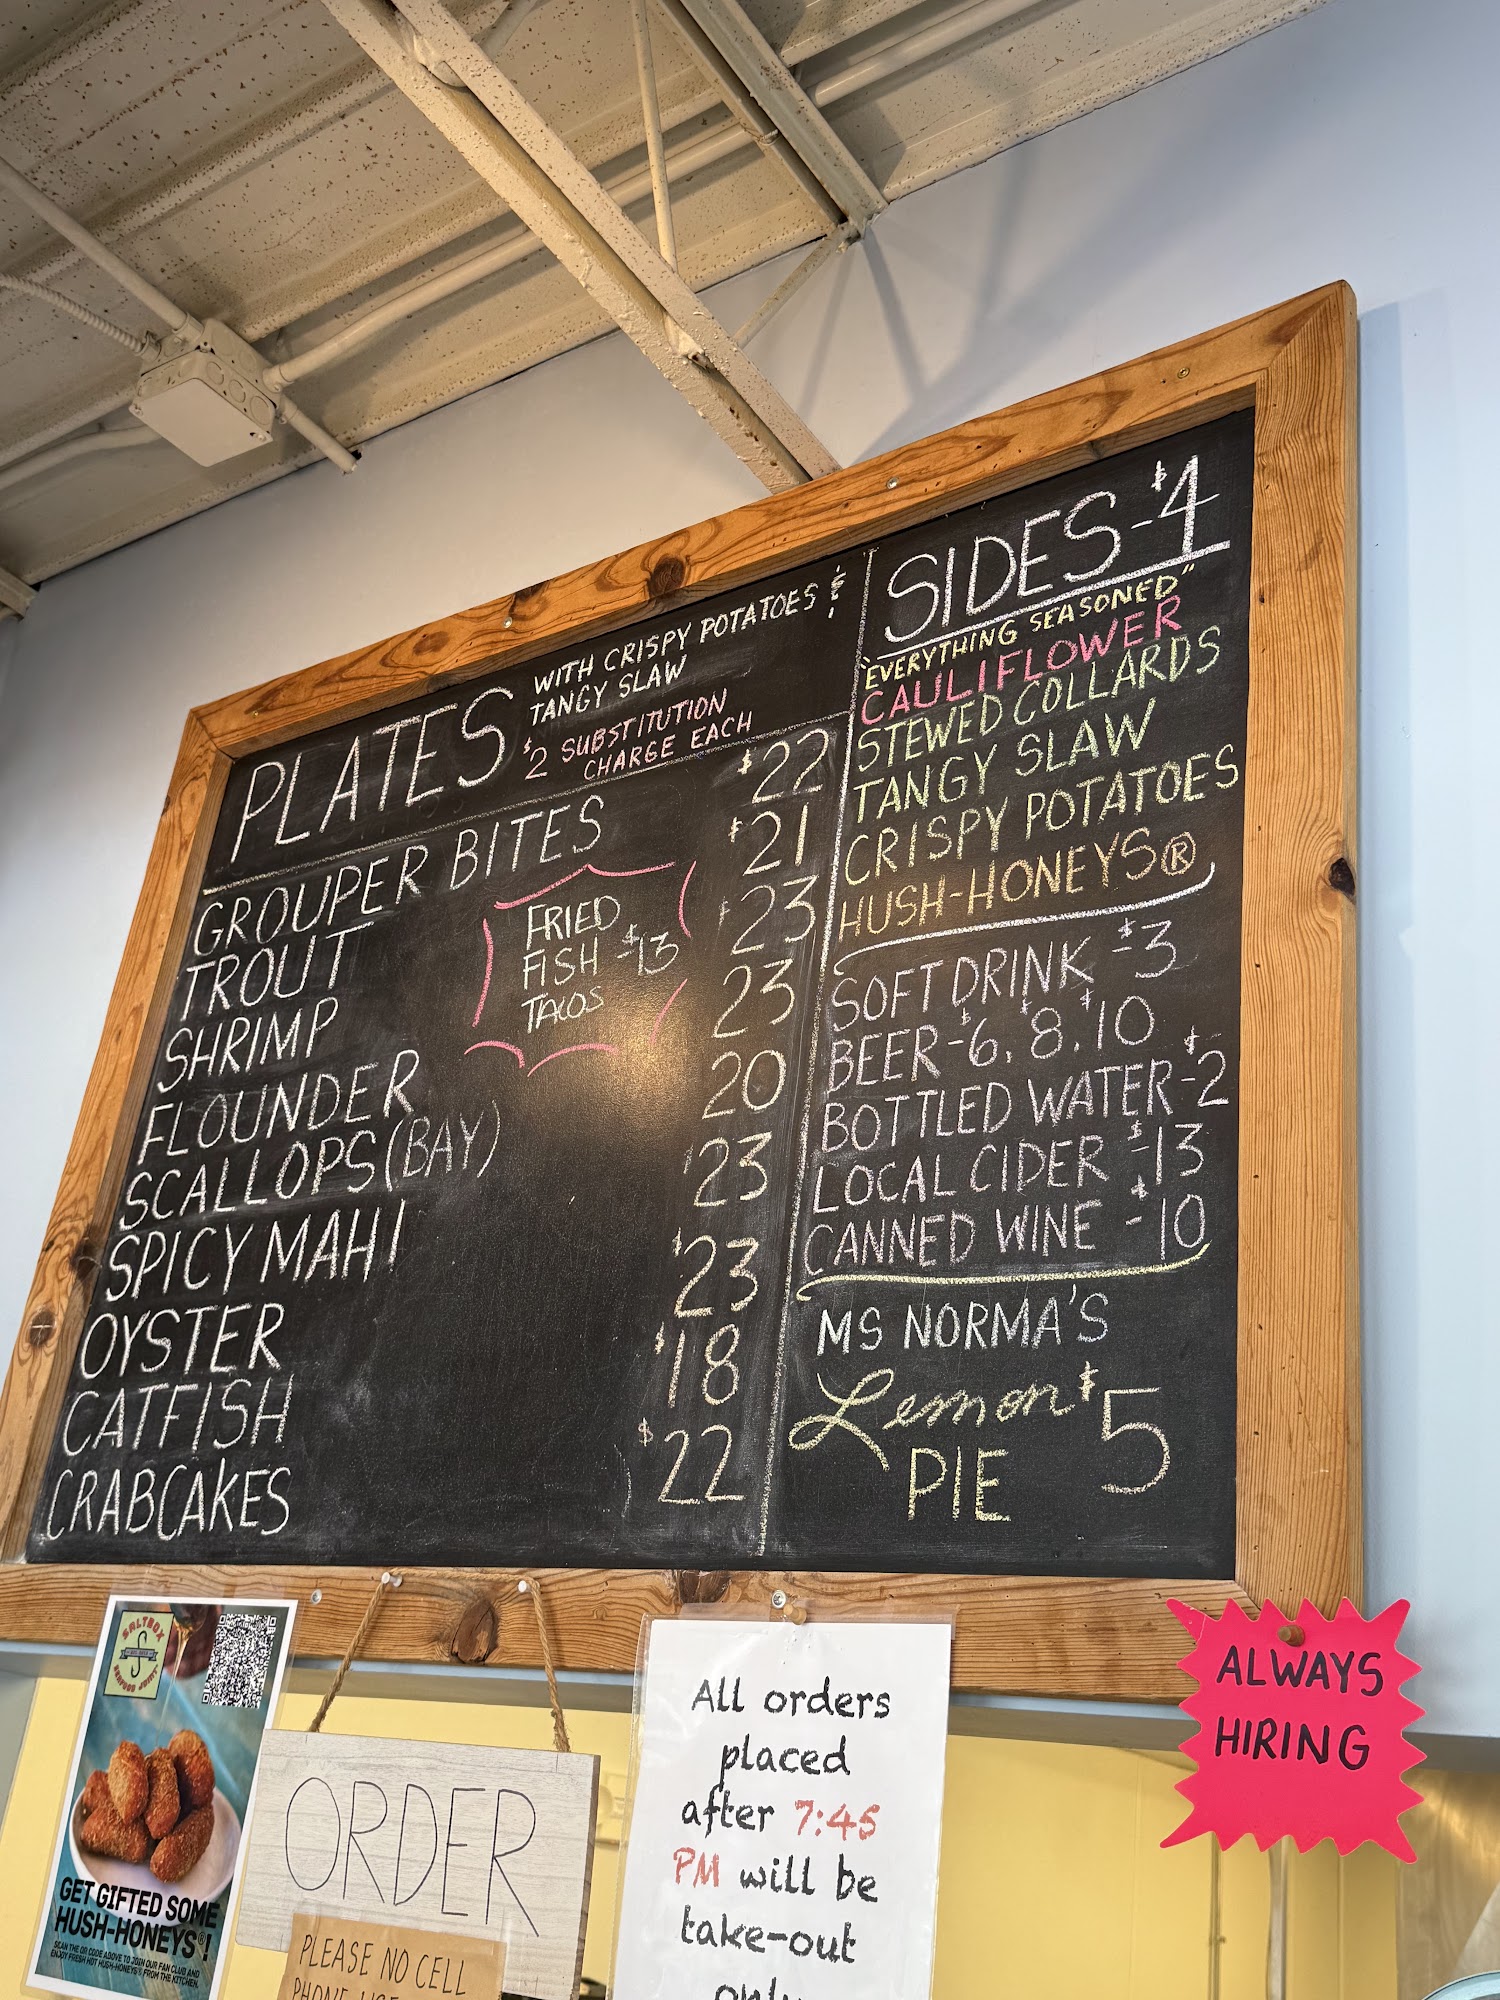 PLATES
WITH CRISPY POTATOES &
TANGY SLAW
$2 SUBSTITUTION
CHARGE EACH
GROUPER BITES $22
TROUT $21
SHRIMP $23
FLOUNDER 23
SCALLOPS (BAY) 20
SPICY MAHI $23
OYSTER $23
CATFISH $18
CRABCAKES $22
FRIED
FISH - $13
TACOS
SIDES - $4
"EVERYTHING SEASONED"
CAULIFLOWER
STEWED COLLARDS
TANGY SLAW
CRISPY POTATOES
HUSH-HONEYS®
SOFT DRINK - $3
BEER - $6, $8, $10
BOTTLED WATER - $2
LOCAL CIDER - $13
CANNED WINE - $10
MS NORMA'S
Lemon $5
PIE
SALTBOX
SEAFOOD JOINT
GET GIFTED SOME
HUSH-HONEYS®!
SCAN THE QR CODE ABOVE TO JOIN OUR FAN CLUB AND
ENJOY FRESH HOT HUSH-HONEYS® FROM THE KITCHEN.
ORDER
PLEASE NO CELL
PHONE USE
All orders
placed
after 7:45
PM will be
take-out
only
ALWAYS
HIRING